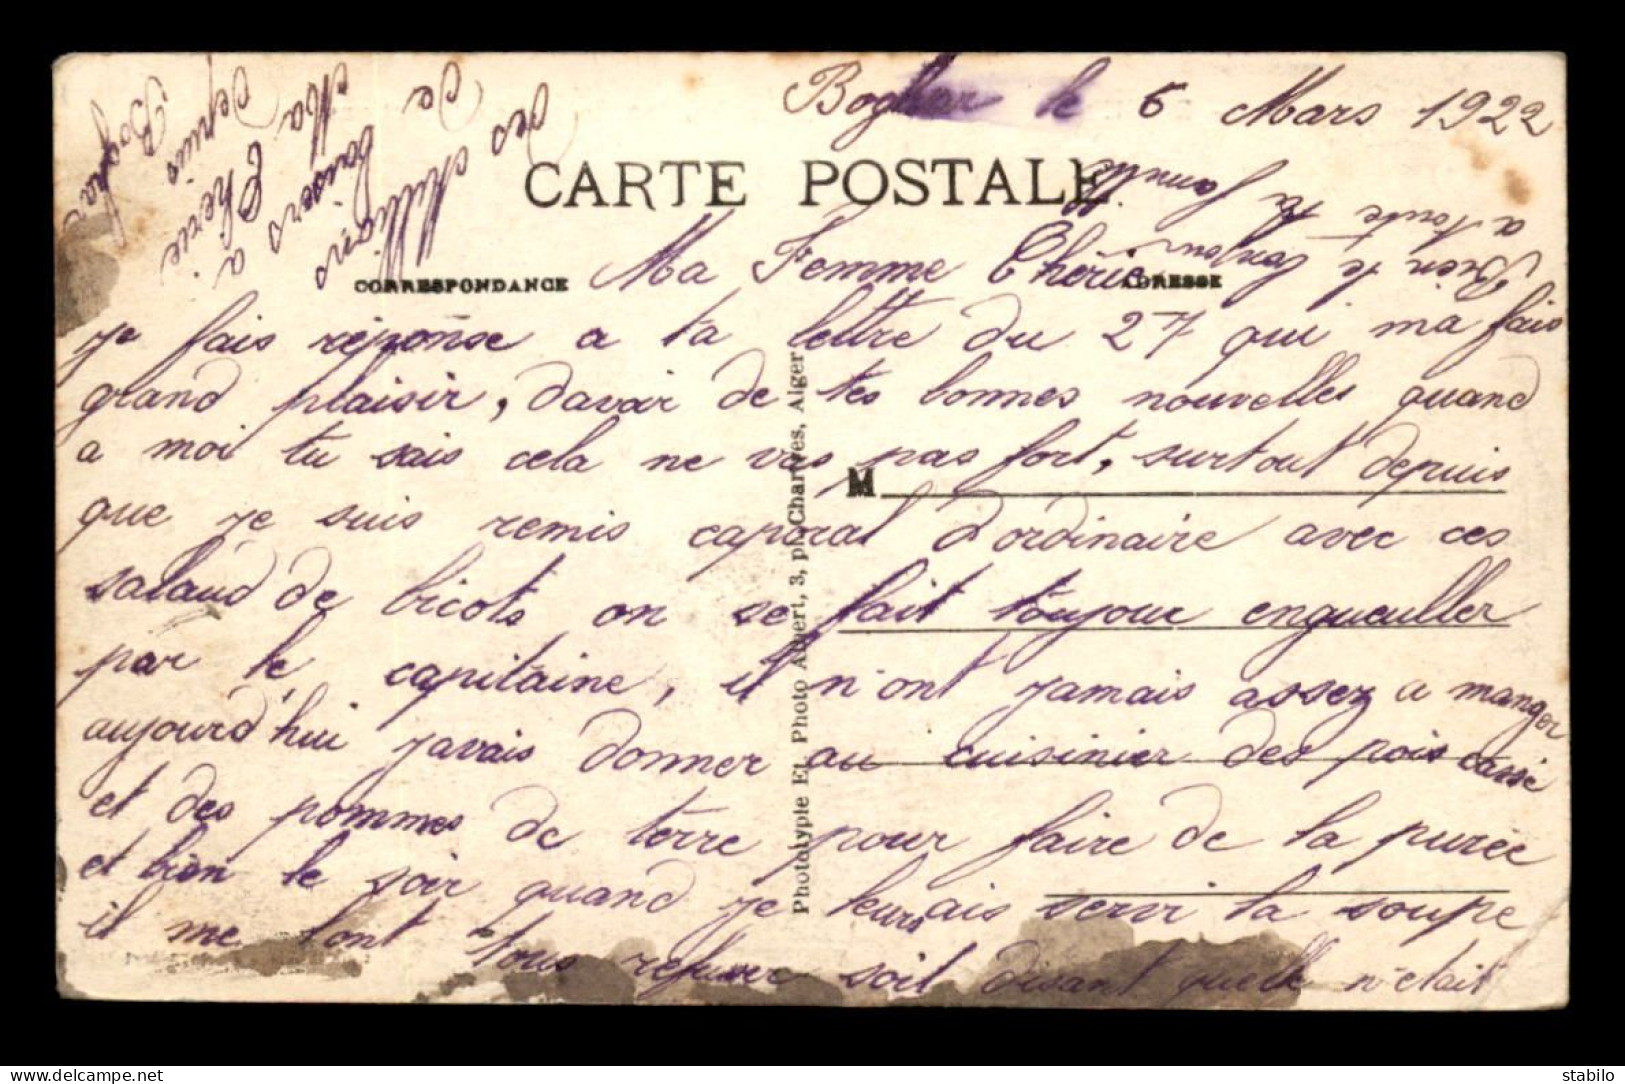 Boghar le 6 Mars 1922
CARTE POSTALE
CORRESPONDANCE
ADRESSE
Ma Femme Chérie
je fais réponse a ta lettre du 27 qui ma fais
grand plaisir, davoir de tes bonnes nouvelles quand
a moi tu sais cela ne vas pas fort, surtout depuis
que je suis remis caporal d'ordinaire avec ces
salaud de bicots on se fait toujour engueuller
par le capitaine, il n'ont jamais assez a manger
aujourd'hui javais donner au cuisinier des pois cassé
et des pommes de terre pour faire de la purée
et bien le soir quand je leurs ais servi la soupe
il me lont tous refuser soit disant quelle n'etait
Bien le bonjour
a toute la famille
des millions
de baisers
à
Ma Chérie
depuis
Boghar
M
Phototypie Et. Photo Albert, 3, pl. Chartres, Alger
delcampe.net
stabilo